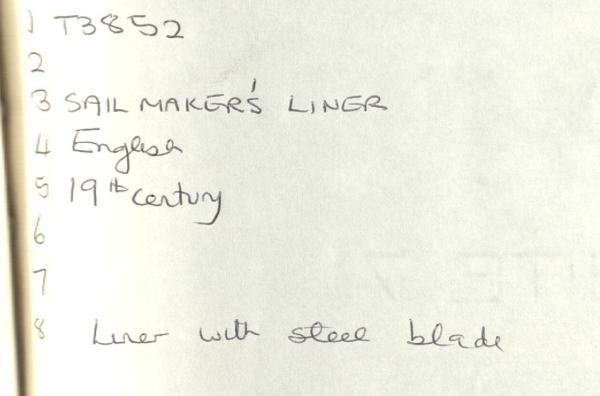 1 T3852
2
3 SAIL MAKER'S LINER
4 English
5 19th century
6
7
8 Liner with steel blade